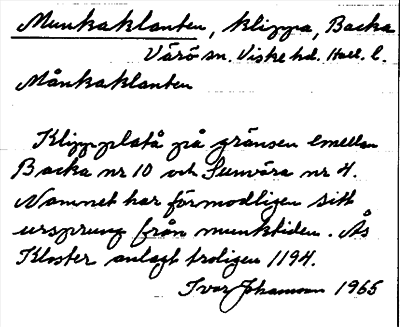 Munkaklanten, klippa, Backa
Värö sn. Viske hd. Hall. l.
Månkaklanten
Klippplatå på gränsen emellan
Backa nr 10 och Sunvära nr 4.
Namnet har förmodligen sitt
ursprung från munktiden. Ås
Kloster anlagt troligen 1194.
Ivar Johansson 1965